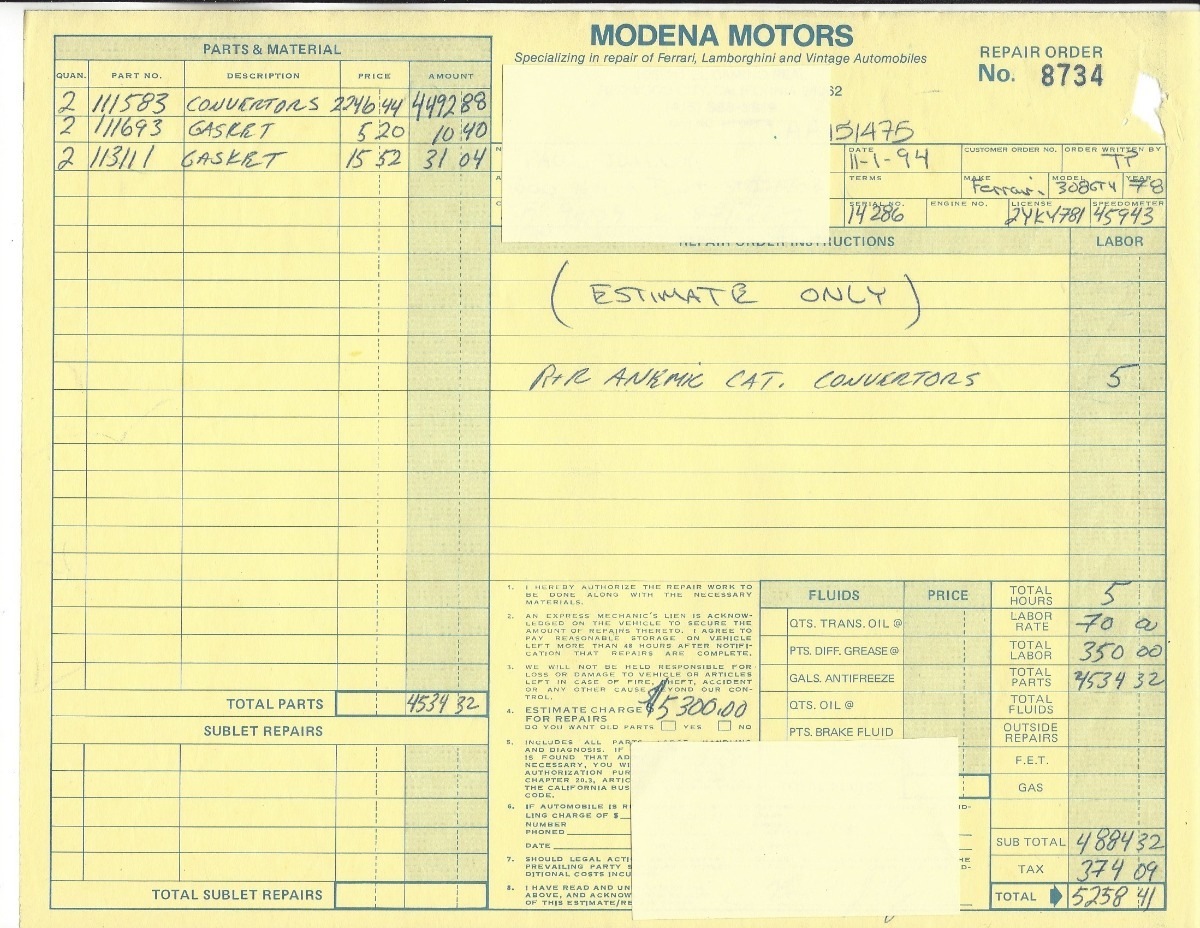 MODENA MOTORS
Specializing in repair of Ferrari, Lamborghini and Vintage Automobiles
REPAIR ORDER
No. 8734
62
151475
DATE 11-1-94 CUSTOMER ORDER NO. ORDER WRITTEN BY TP
TERMS MAKE Ferrari. MODEL 308GT4 YEAR 78
SERIAL NO. 14286 ENGINE NO. LICENSE 2YKY781 SPEEDOMETER 45943
PARTS & MATERIAL
QUAN. PART NO. DESCRIPTION PRICE AMOUNT
2 111583 CONVERTORS 2246 44 4492 88
2 111693 GASKET 5 20 10 40
2 113111 GASKET 15 52 31 04
TOTAL PARTS 4534 32
SUBLET REPAIRS
TOTAL SUBLET REPAIRS
REPAIR ORDER INSTRUCTIONS LABOR
(ESTIMATE ONLY)
R+R CAT. CONVERTORS 5
1. I HEREBY AUTHORIZE THE REPAIR WORK TO
BE DONE ALONG WITH THE NECESSARY
MATERIALS.
2. AN EXPRESS MECHANIC'S LIEN IS ACKNOW-
LEDGED ON THE VEHICLE TO SECURE THE
AMOUNT OF REPAIRS THERETO. I AGREE TO
PAY REASONABLE STORAGE ON VEHICLE
LEFT MORE THAN 48 HOURS AFTER NOTIFI-
CATION THAT REPAIRS ARE COMPLETE.
3. WE WILL NOT BE HELD RESPONSIBLE FOR
LOSS OR DAMAGE TO VEHICLE OR ARTICLES
LEFT IN CASE OF FIRE, THEFT, ACCIDENT
OR ANY OTHER CAUSE BEYOND OUR CON-
TROL.
4. ESTIMATE CHARGE $5300.00
FOR REPAIRS
DO YOU WANT OLD PARTS YES NO
5. INCLUDES ALL PARTS
AND DIAGNOSIS. IF
IS FOUND THAT AD
NECESSARY, YOU WI
AUTHORIZATION PUR
CHAPTER 20.3, ARTIC
THE CALIFORNIA BUS
CODE.
6. IF AUTOMOBILE IS R
LING CHARGE OF $
NUMBER
PHONED
DATE
7. SHOULD LEGAL ACTI
PREVAILING PARTY S
DITIONAL COSTS INCU
8. I HAVE READ AND UN
ABOVE, AND ACKNOW
OF THIS ESTIMATE/RE
FLUIDS PRICE
QTS. TRANS. OIL @
PTS. DIFF. GREASE @
GALS. ANTIFREEZE
QTS. OIL @
PTS. BRAKE FLUID
TOTAL HOURS 5
LABOR RATE 70 00
TOTAL LABOR 350 00
TOTAL PARTS 4534 32
TOTAL FLUIDS
OUTSIDE REPAIRS
F.E.T.
GAS
SUB TOTAL 4884 32
TAX 374 09
TOTAL 5258 41